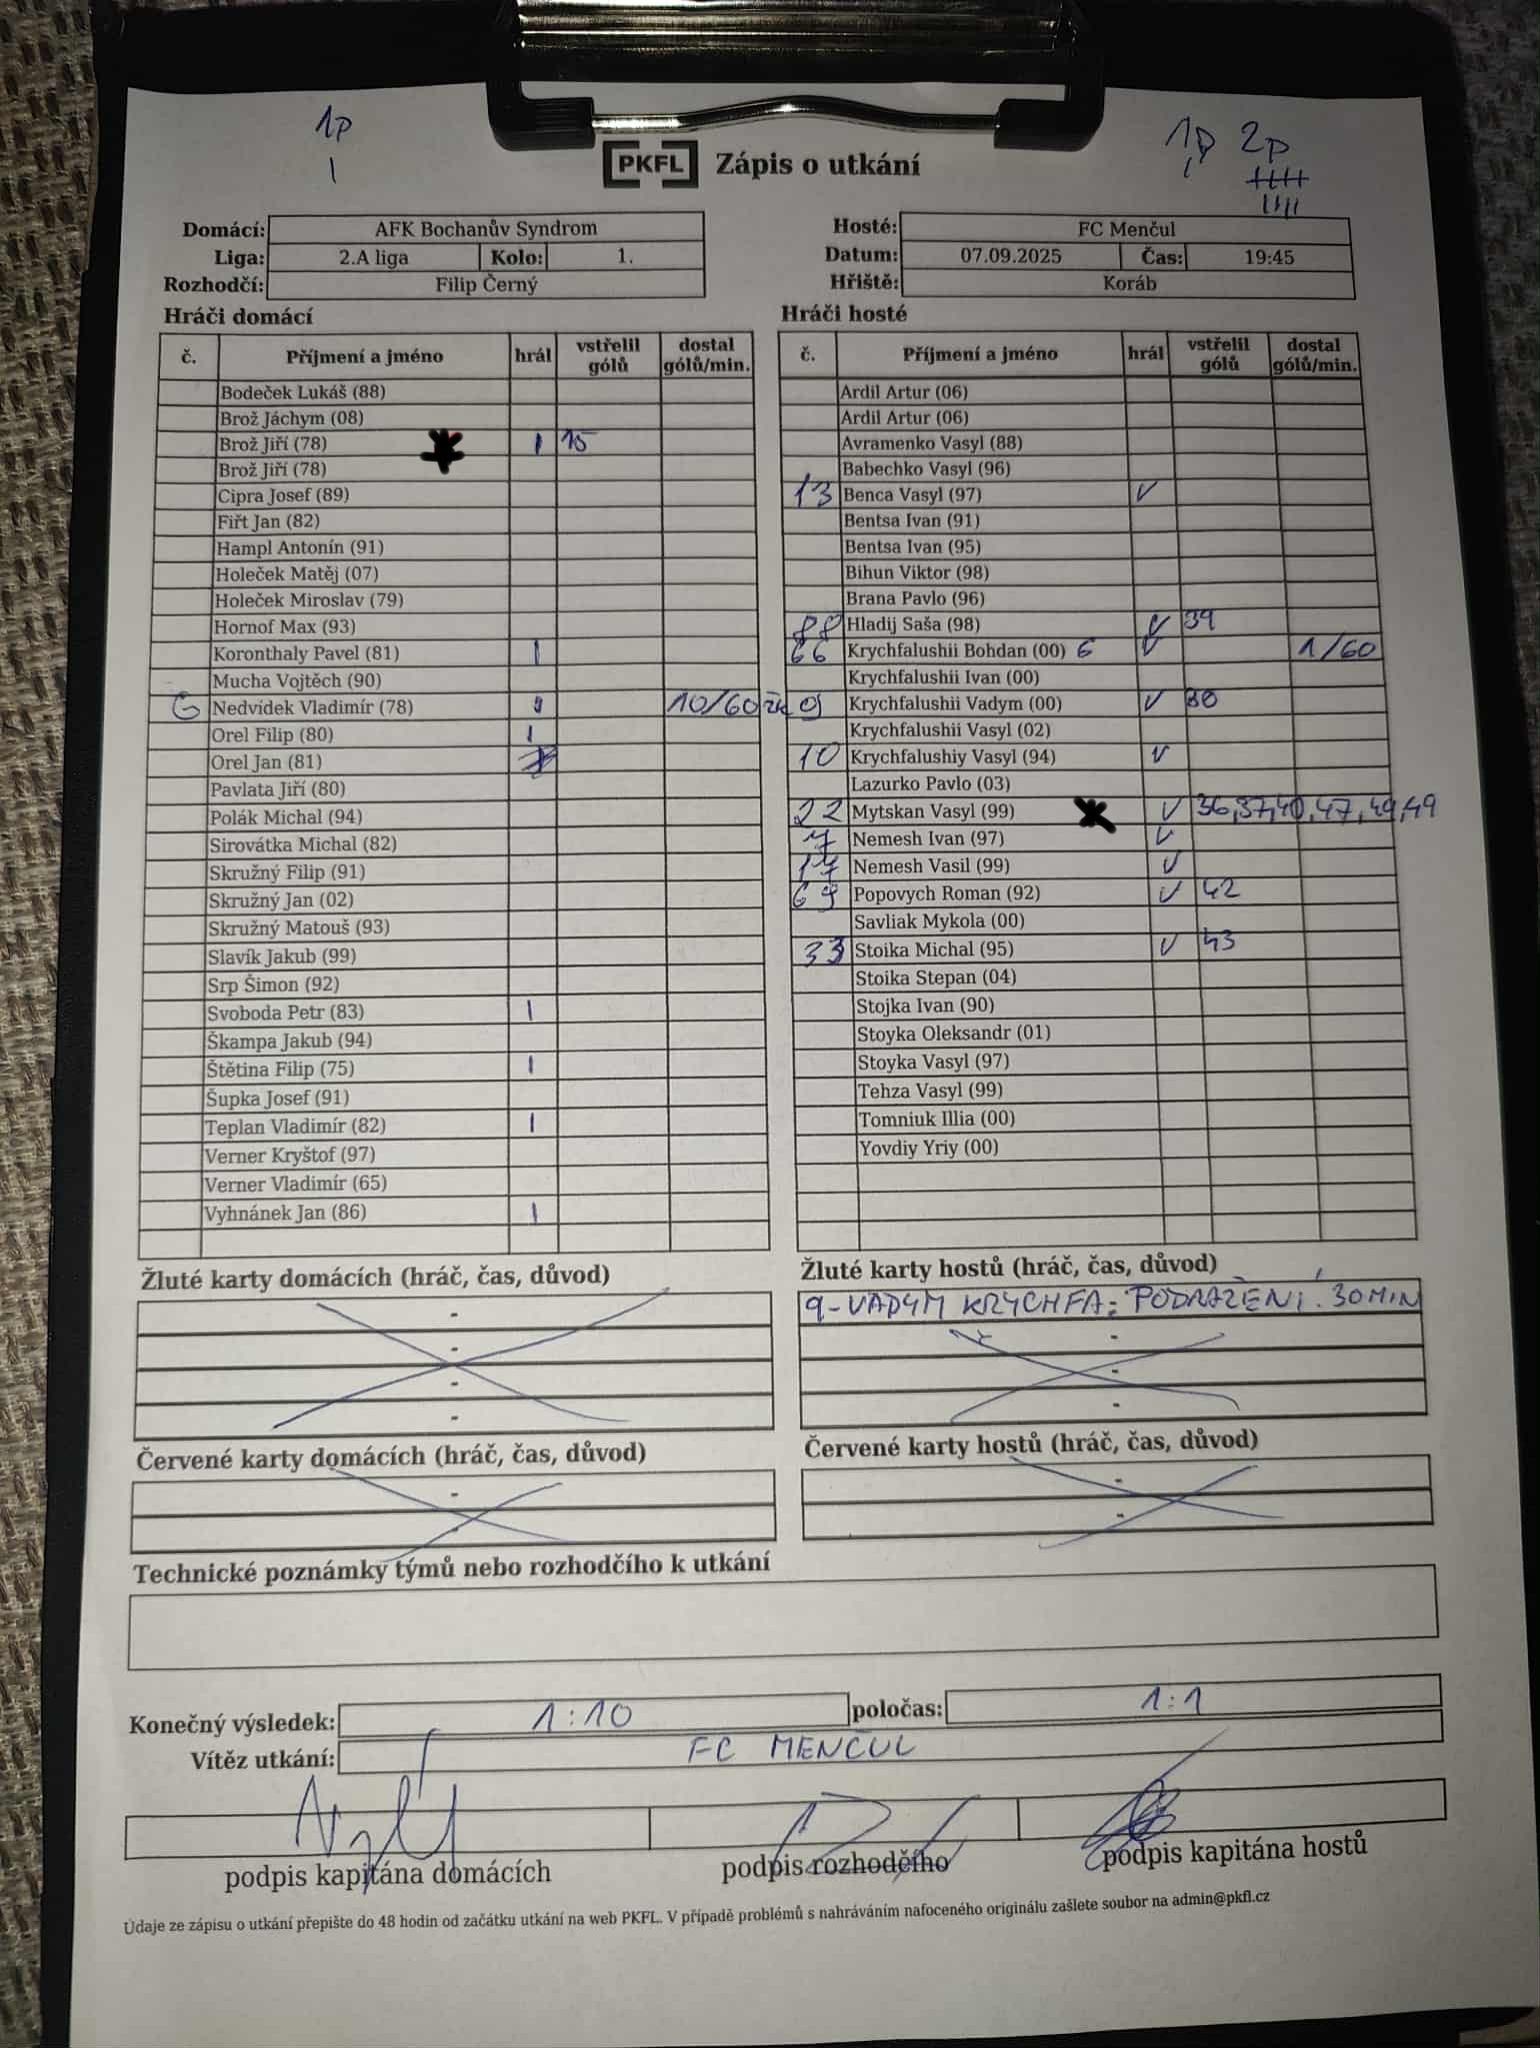 1p
1p 2p
PKFL Zápis o utkání
Domácí: AFK Bochanův Syndrom
Liga: 2.A liga Kolo: 1.
Rozhodčí: Filip Černý
Hosté: FC Menčul
Datum: 07.09.2025 Čas: 19:45
Hřiště: Koráb
Hráči domácí
č. Příjmení a jméno hrál vstřelil gólů dostal gólů/min.
Bodeček Lukáš (88)
Brož Jáchym (08)
Brož Jiří (78) 1 15
Brož Jiří (78)
Cipra Josef (89)
Fiřt Jan (82)
Hampl Antonín (91)
Holeček Matěj (07)
Holeček Miroslav (79)
Hornof Max (93)
Koronthaly Pavel (81) 1
Mucha Vojtěch (90)
G Nedvídek Vladimír (78) 10/60
Orel Filip (80) 1
Orel Jan (81)
Pavlata Jiří (80)
Polák Michal (94)
Sirovátka Michal (82)
Skružný Filip (91)
Skružný Jan (02)
Skružný Matouš (93)
Slavík Jakub (99)
Srp Šimon (92)
Svoboda Petr (83) 1
Škampa Jakub (94)
Štětina Filip (75) 1
Šupka Josef (91)
Teplan Vladimír (82) 1
Verner Kryštof (97)
Verner Vladimír (65)
Vyhnánek Jan (86) 1
Hráči hosté
č. Příjmení a jméno hrál vstřelil gólů dostal gólů/min.
Ardil Artur (06)
Ardil Artur (06)
Avramenko Vasyl (88)
Babechko Vasyl (96)
13 Benca Vasyl (97) ✓
Bentsa Ivan (91)
Bentsa Ivan (95)
Bihun Viktor (98)
Brana Pavlo (96)
88 Hladij Saša (98) ✓ 39
66 Krychfalushii Bohdan (00) G ✓ 1/60
Krychfalushii Ivan (00)
9 Krychfalushii Vadym (00) ✓ 30
Krychfalushii Vasyl (02)
10 Krychfalushiy Vasyl (94) ✓
Lazurko Pavlo (03)
22 Mytskan Vasyl (99) ✓ 36,37,40,47,49,49
7 Nemesh Ivan (97) ✓
17 Nemesh Vasil (99) ✓
69 Popovych Roman (92) ✓ 42
Savliak Mykola (00)
33 Stoika Michal (95) ✓ 43
Stoika Stepan (04)
Stojka Ivan (90)
Stoyka Oleksandr (01)
Stoyka Vasyl (97)
Tehza Vasyl (99)
Tomniuk Illia (00)
Yovdiy Yriy (00)
Žluté karty domácích (hráč, čas, důvod)
-
-
-
-
Žluté karty hostů (hráč, čas, důvod)
9-VADYM KRYCHFA; PODRAŽENÍ. 30MIN
-
-
-
Červené karty domácích (hráč, čas, důvod)
-
-
Červené karty hostů (hráč, čas, důvod)
-
-
Technické poznámky týmů nebo rozhodčího k utkání
Konečný výsledek: 1:10 poločas: 1:1
Vítěz utkání: FC MENČUL
podpis kapitána domácích podpis rozhodčího podpis kapitána hostů
Údaje ze zápisu o utkání přepište do 48 hodin od začátku utkání na web PKFL. V případě problémů s nahráváním nafoceného originálu zašlete soubor na admin@pkfl.cz